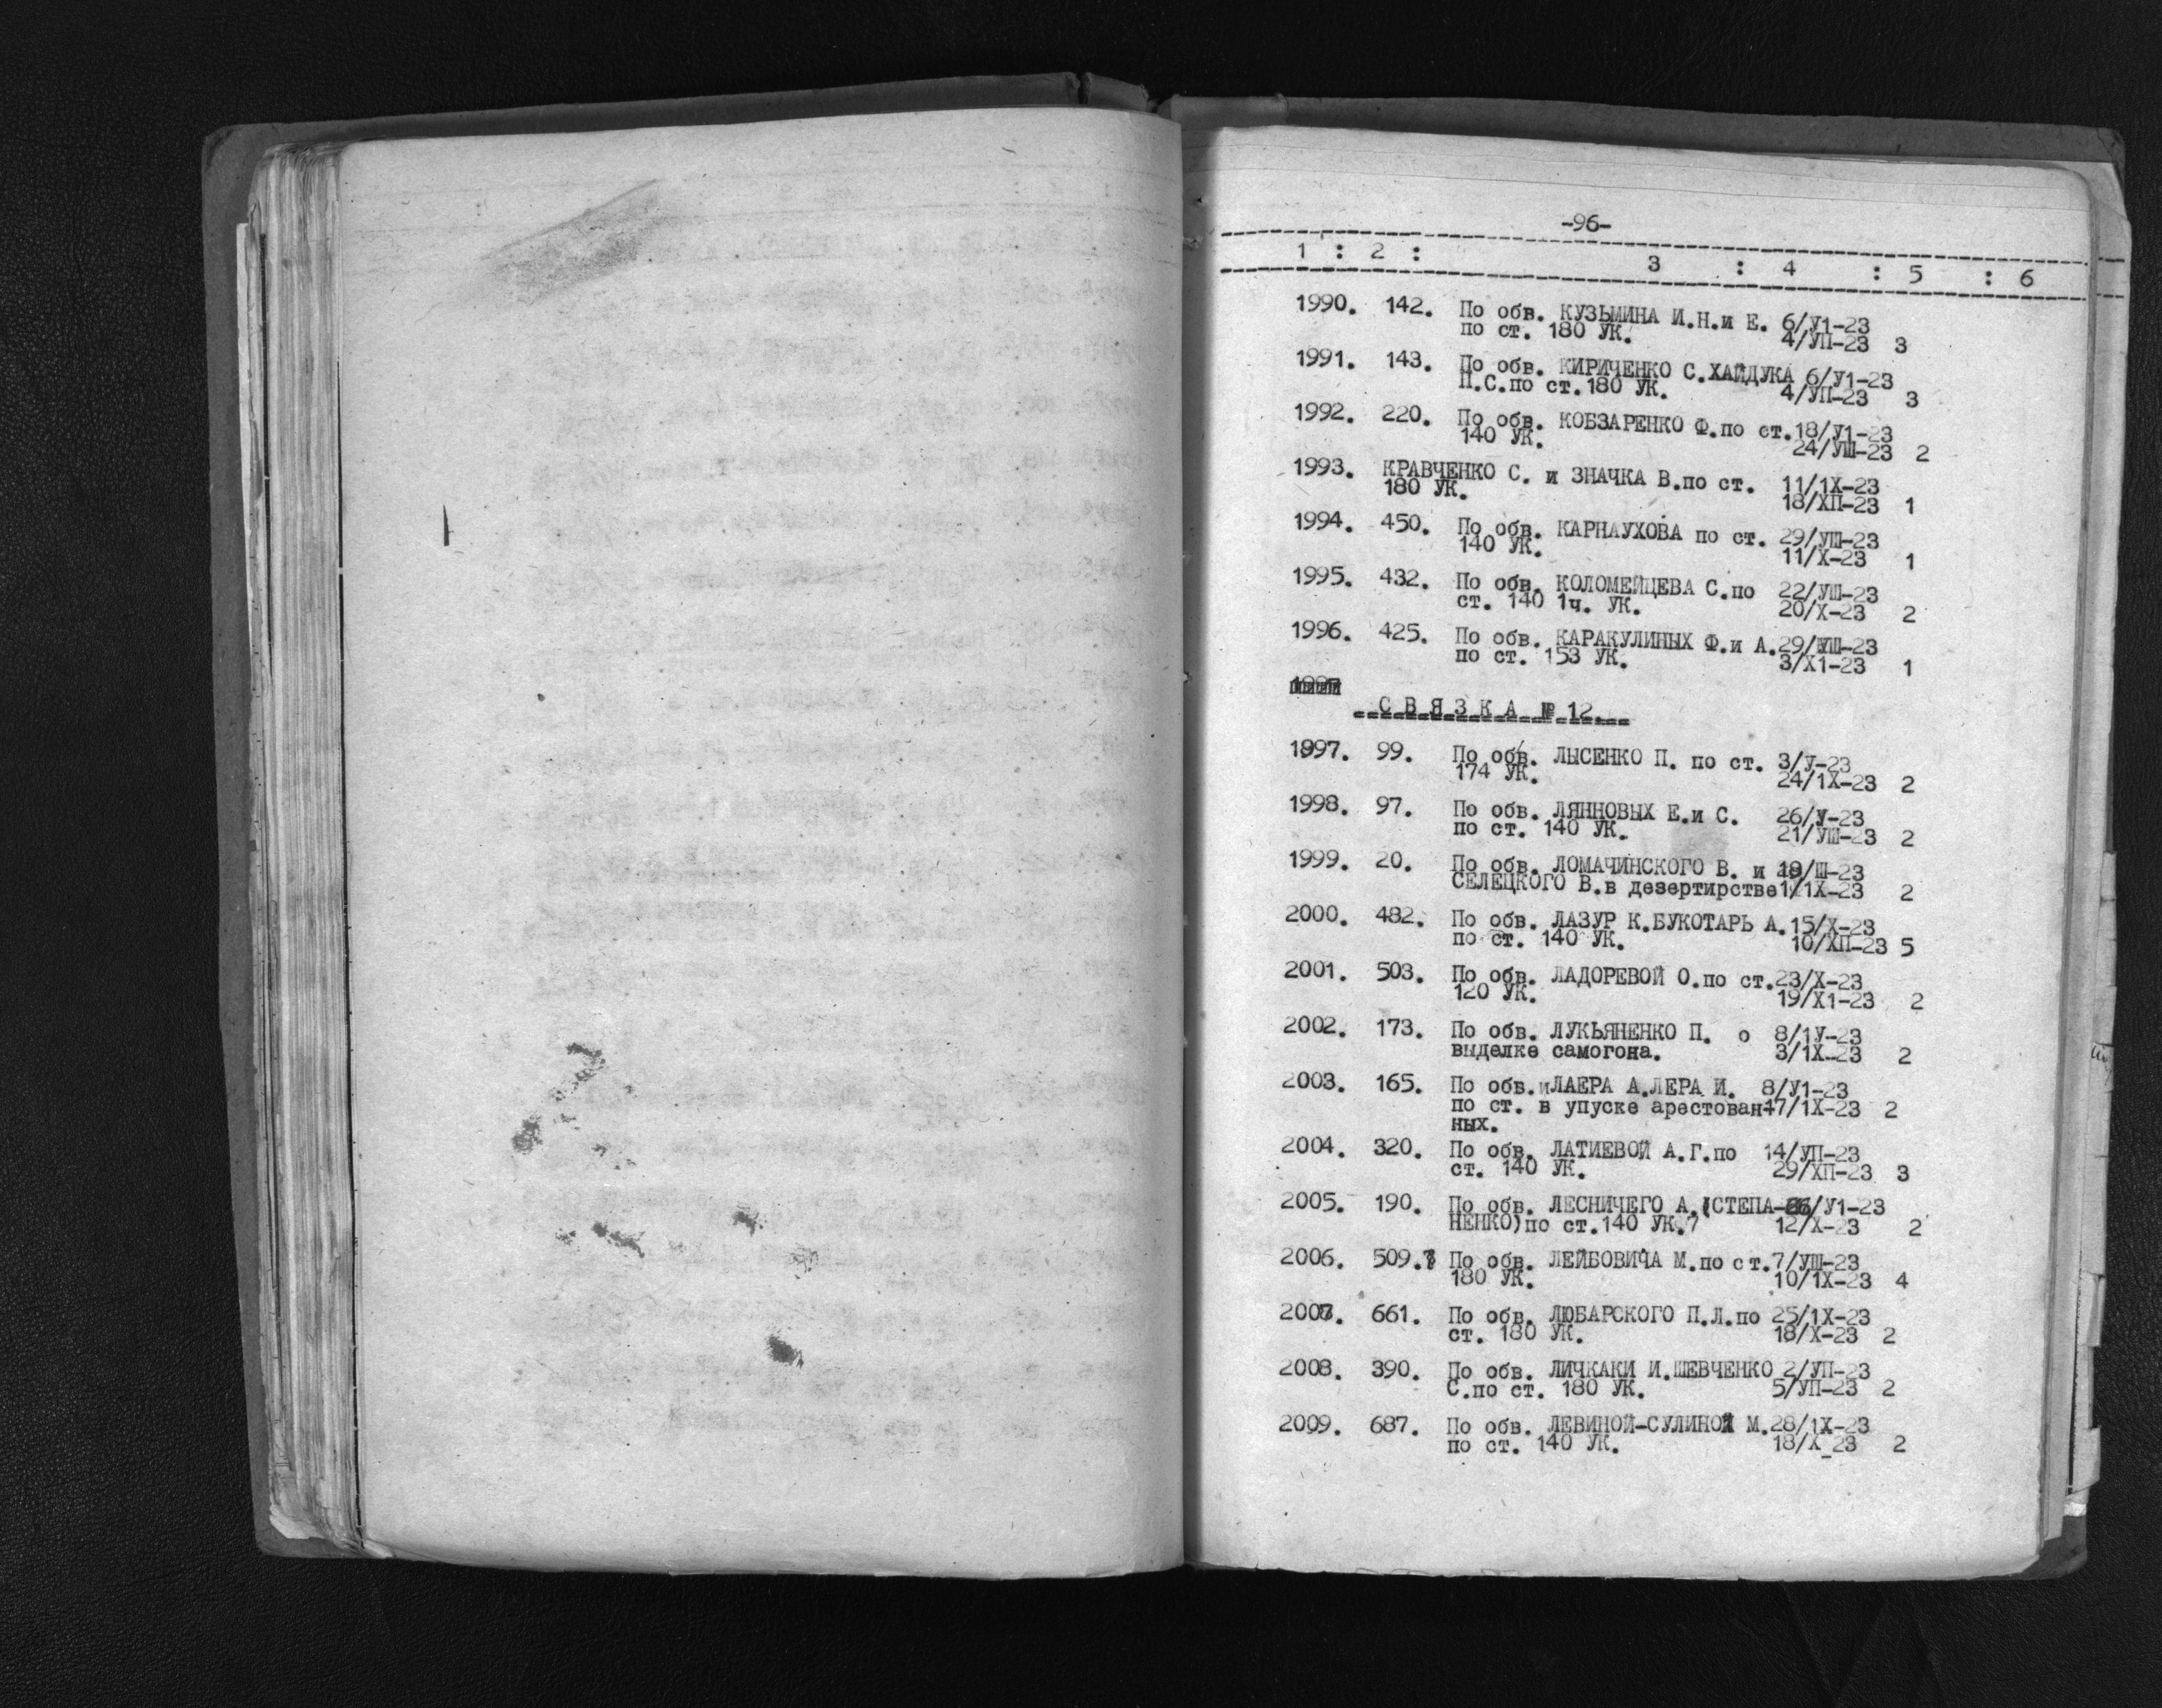 -96-
1 : 2 : 3 : 4 : 5 : 6
1990. 142. По обв. КУЗЬМИНА И.Н.и Е. 6/У1-23
по ст. 180 УК. 4/УП-23 3
1991. 143. По обв. КИРИЧЕНКО С.ХАЙДУКА 6/У1-23
П.С.по ст.180 УК. 4/УП-23 3
1992. 220. По обв. КОБЗАРЕНКО Ф.по ст.18/У1-23
140 УК. 24/УШ-23 2
1993. КРАВЧЕНКО С. и ЗНАЧКА В.по ст. 11/1Х-23
180 УК. 18/ХП-23 1
1994. 450. По обв. КАРНАУХОВА по ст. 29/УШ-23
140 УК. 11/Х-23 1
1995. 432. По обв. КОЛОМЕЙЦЕВА С.по 22/УШ-23
ст. 140 1ч. УК. 20/Х-23 2
1996. 425. По обв. КАРАКУЛИНЫХ Ф.и А.29/УШ-23
по ст. 153 УК. 3/Х1-23 1
С В Я З К А № 12.
1997. 99. По обв. ЛЫСЕНКО П. по ст. 3/У-23
174 УК. 24/1Х-23 2
1998. 97. По обв. ЛЯННОВЫХ Е.и С. 26/У-23
по ст. 140 УК. 21/УШ-23 2
1999. 20. По обв. ЛОМАЧИНСКОГО В. и /Ш-23
СЕЛЕЦКОГО В.в дезертирстве1/1Х-23 2
2000. 482. По обв. ЛАЗУР К.БУКОТАРЬ А.15/Х-23
по ст. 140 УК. 10/ХП-23 5
2001. 503. По обв. ЛАДОРЕВОЙ О.по ст.23/Х-23
120 УК. 19/Х1-23 2
2002. 173. По обв. ЛУКЬЯНЕНКО П. о 8/1У-23
выделке самогона. 3/1Х-23 2
2003. 165. По обв.иЛАЕРА А.ЛЕРА И. 8/У1-23
по ст. в упуске арестован-17/1Х-23 2
ных.
2004. 320. По обв. ЛАТИЕВОЙ А.Г.по 14/УП-23
ст. 140 УК. 29/ХП-23 3
2005. 190. По обв. ЛЕСНИЧЕГО А.(СТЕПА-26/У1-23
НЕНКО)по ст.140 УК.7 12/Х-23 2
2006. 509. По обв. ЛЕЙБОВИЧА М.по ст.7/УШ-23
180 УК. 10/1Х-23 4
2007. 661. По обв. ЛЮБАРСКОГО П.Л.по 25/1Х-23
ст. 180 УК. 18/Х-23 2
2008. 390. По обв. ЛИЧКАКИ И.ШЕВЧЕНКО 2/УП-23
С.по ст. 180 УК. 5/УП-23 2
2009. 687. По обв. ЛЕВИНОЙ-СУЛИНОЙ М.28/1Х-23
по ст. 140 УК. 18/Х_23 2